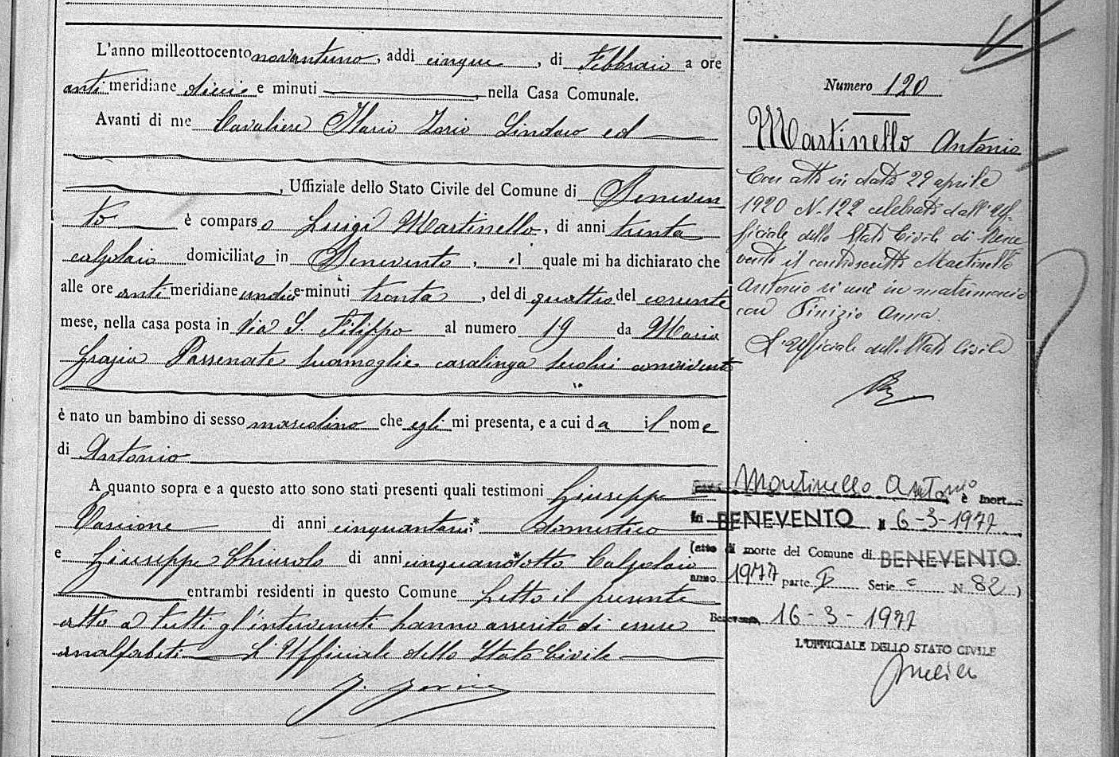 L'anno milleottocento novantuno, addi cinque, di Febbraio a ore
anti meridiane dieci e minuti , nella Casa Comunale.
Avanti di me Cavaliere Ilario Iorio Sindaco ed
, Uffiziale dello Stato Civile del Comune di Beneven
to è comparso Luigi Martinello, di anni trenta
calzolaio domiciliato in Benevento, il quale mi ha dichiarato che
alle ore anti meridiane undici e minuti trenta, del dì quattro del corrente
mese, nella casa posta in Via S. Filippo al numero 19 da Maria
Grazia sua moglie casalinga seco lui convivente
è nato un bambino di sesso mascolino che egli mi presenta, e a cui da il nome
di Antonio
A quanto sopra e a questo atto sono stati presenti quali testimoni Giuseppe
di anni domestico
e Giuseppe Chiusolo di anni Calzolaio
entrambi residenti in questo Comune Letto il presente
atto a tutti gl'intervenuti hanno asserito di essere
analfabeti L'Uffiziale dello Stato Civile
Numero 120
Martinello Antonio
Con atto in data 29 aprile
1920 N. 122 celebrato dall'Uf-
ficiale dello Stato Civile di Bene
vento il controscritto Martinello
Antonio si unì in matrimonio
con Pinizio Anna
L'Ufficiale dello Stato Civile
Martinello Antonio è mort
in BENEVENTO il 6-3-1977
(atto di morte del Comune di BENEVENTO
anno 1977 parte Serie C N. 82)
Benevento, 16-3-1977
L'UFFICIALE DELLO STATO CIVILE